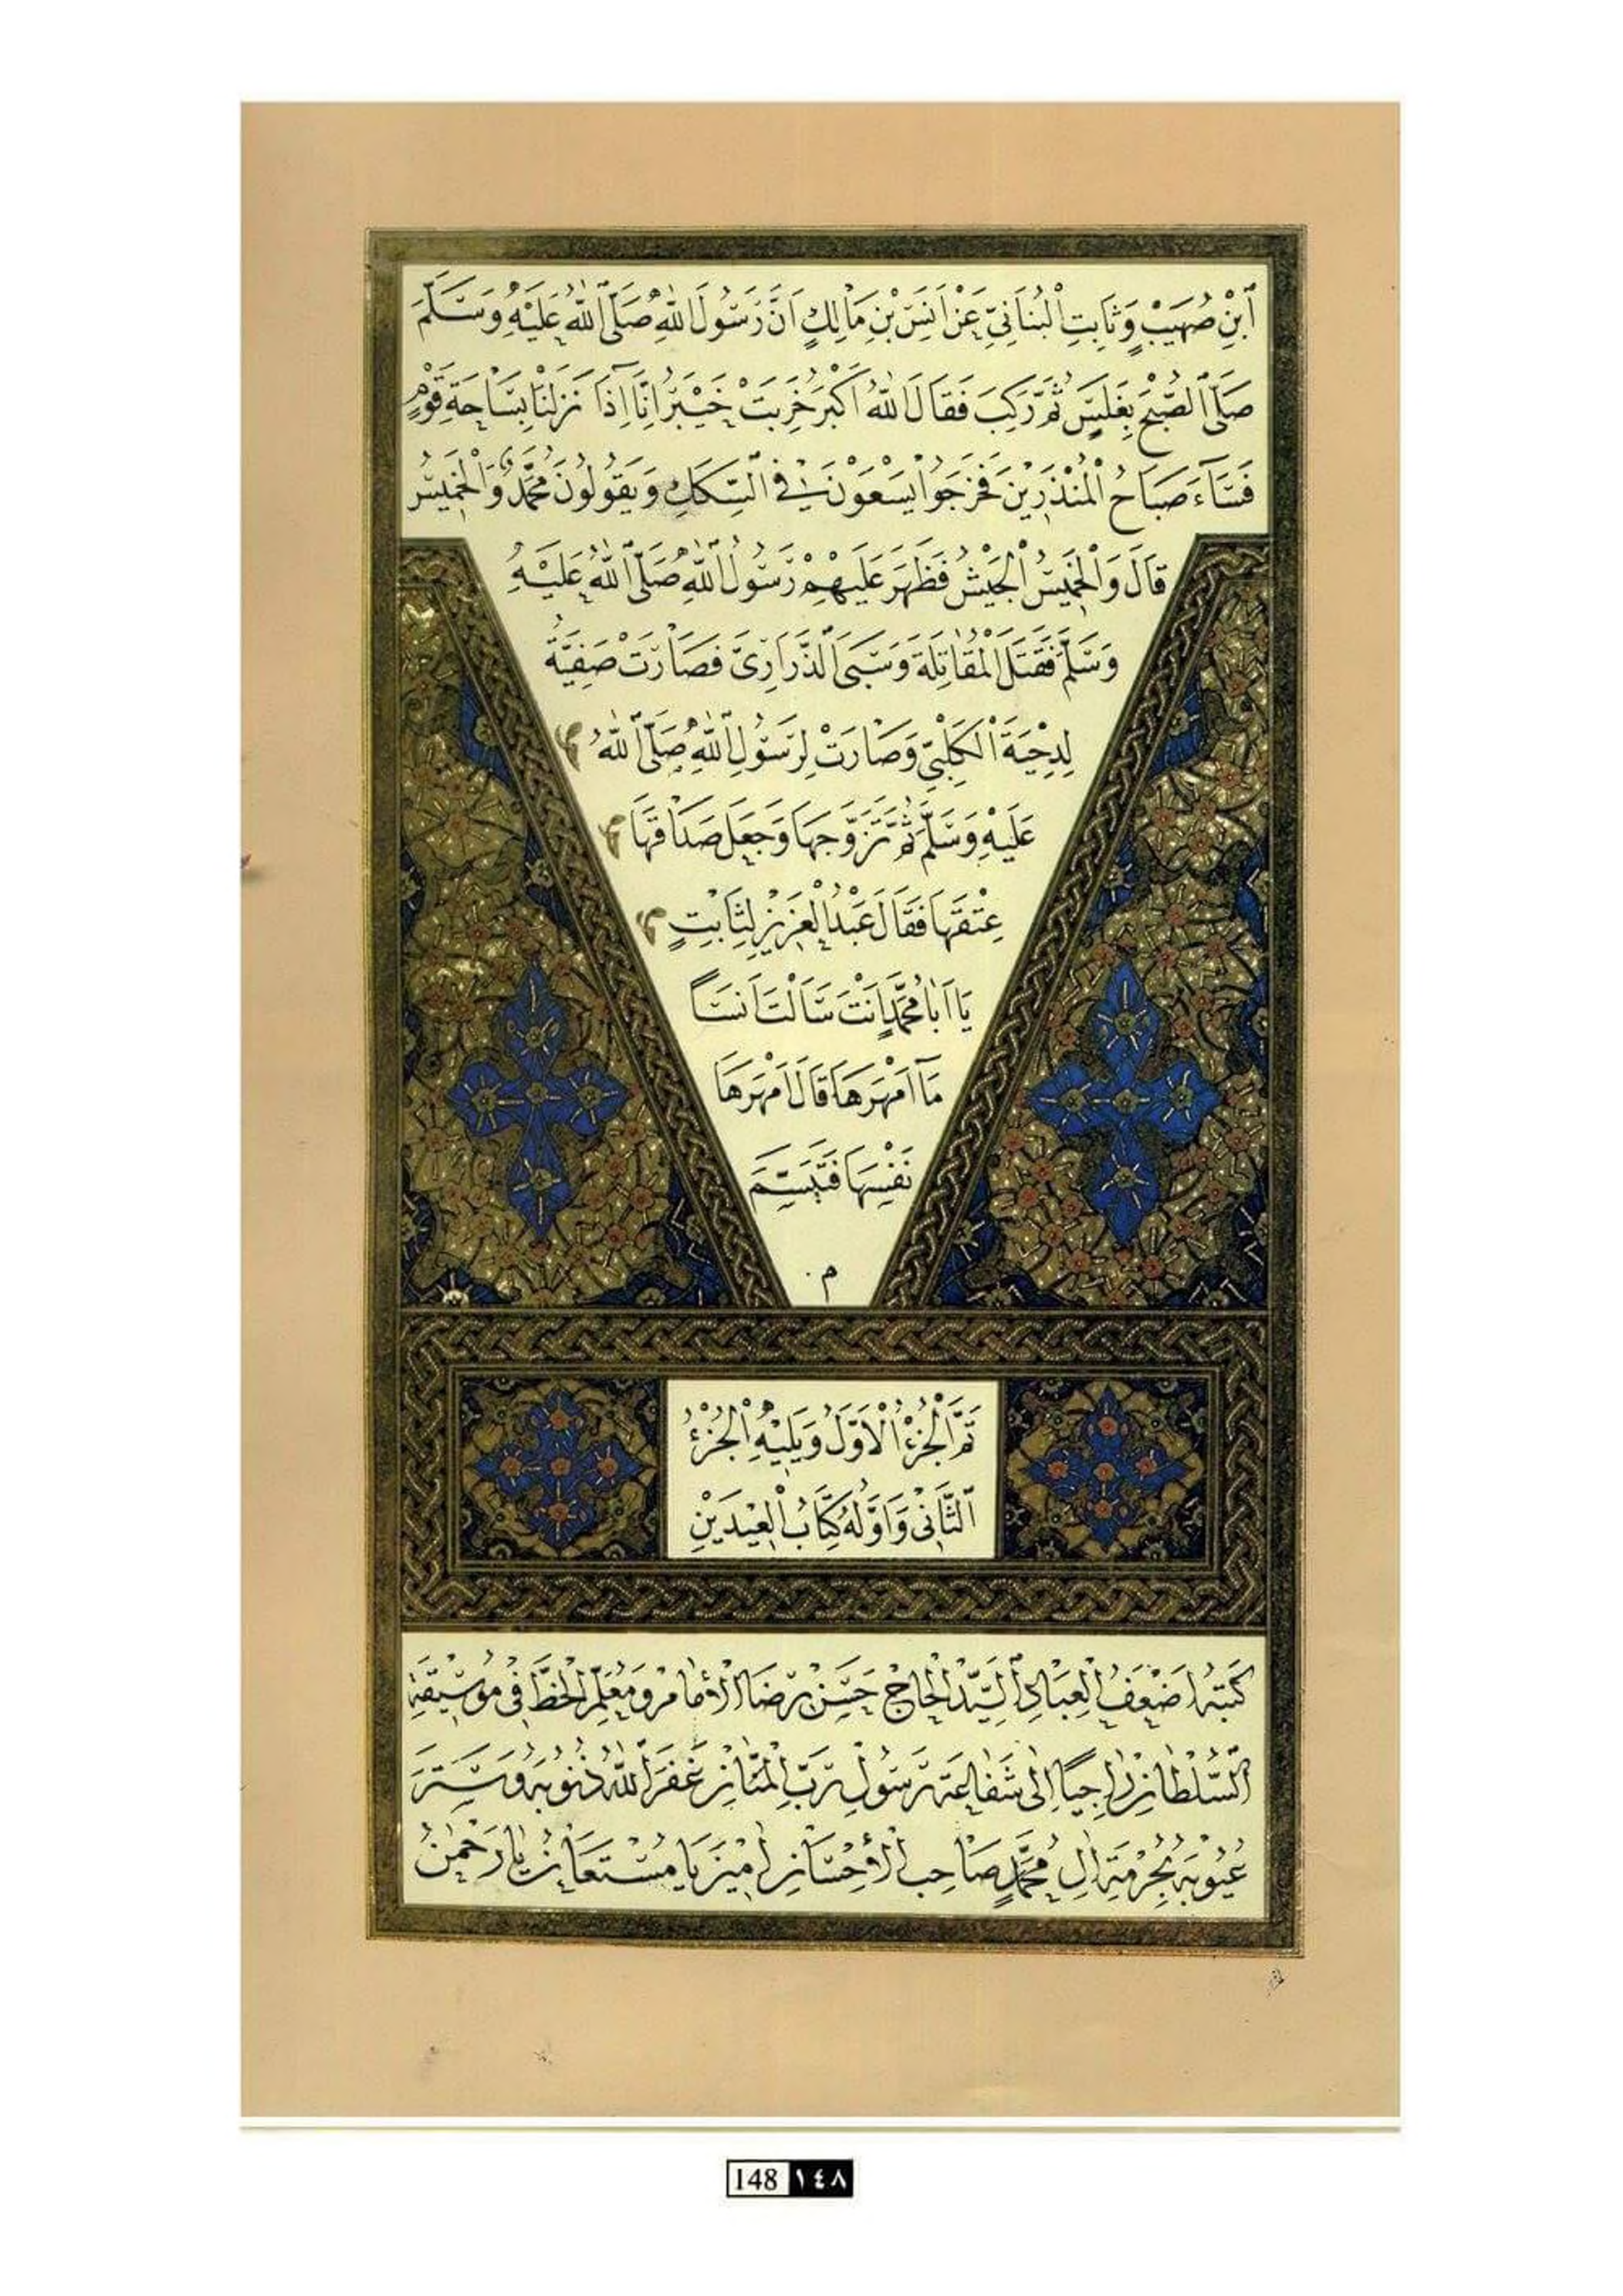 ٱبْنِ صُهَيْبٍ وَثَابِتِ الْبُنَانِيِّ عَنْ اَنَسِ بْنِ مَالِكٍ اَنَّ رَسُولَ اللّٰهِ صَلَّى اللّٰهُ عَلَيْهِ وَسَلَّمَ
صَلَّى الصُّبْحَ بِغَلَسٍ ثُمَّ رَكِبَ فَقَالَ اللّٰهُ اَكْبَرُ خَرِبَتْ خَيْبَرُ اِنَّا اِذَا نَزَلْنَا بِسَاحَةِ قَوْمٍ
فَسَاۤءَ صَبَاحُ الْمُنْذَرِينَ فَخَرَجُوا يَسْعَوْنَ فِي السِّكَكِ وَيَقُولُونَ مُحَمَّدٌ وَالْخَمِيسُ
قَالَ وَالْخَمِيسُ الْجَيْشُ فَظَهَرَ عَلَيْهِمْ رَسُولُ اللّٰهِ صَلَّى اللّٰهُ عَلَيْهِ
وَسَلَّمَ فَقَتَلَ الْمُقَاتِلَةَ وَسَبَى الذَّرَارِىَّ فَصَارَتْ صَفِيَّةُ
لِدِحْيَةَ الْكَلْبِيِّ وَصَارَتْ لِرَسُولِ اللّٰهِ صَلَّى اللّٰهُ
عَلَيْهِ وَسَلَّمَ ثُمَّ تَزَوَّجَهَا وَجَعَلَ صَدَاقَهَا
عِتْقَهَا فَقَالَ عَبْدُ الْعَزِيزِ لِثَابِتٍ
يَا اَبَا مُحَمَّدٍ اَنْتَ سَاَلْتَ اَنَسًا
مَا اَمْهَرَهَا قَالَ اَمْهَرَهَا
نَفْسَهَا فَتَبَسَّمَ
م
تَمَّ الْجُزْءُ الْاَوَّلُ وَيَلِيْهِ الْجُزْءُ
الثَّانِى وَاَوَّلُهُ كِتَابُ الْعِيدَيْنِ
كَتَبَهُ اَضْعَفُ الْعِبَادِ السَّيِّدُ الْحَاجْ حَسَنْ رِضَا الْاِمَامُ وَمُعَلِّمُ الْخَطِّ فِى مُوسِيقَهِ
السُّلْطَانِ رَاجِيًا اِلَى شَفَاعَةِ رَسُولِ رَبِّ الْمَنَّانِ غَفَرَ اللّٰهُ ذُنُوبَهُ وَسَتَرَ
عُيُوبَهُ بِحُرْمَةِ اٰلِ مُحَمَّدٍ صَاحِبِ الْاِحْسَانِ اٰمِيْنَ يَا مُسْتَعَانُ يَا رَحْمٰنُ
148 ١٤٨